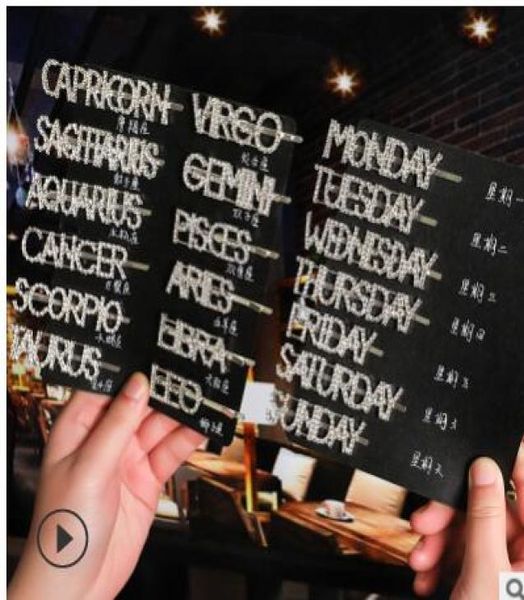 CAPRICORN
摩羯座
SAGITTARIUS
射手座
AQUARIUS
水瓶座
CANCER
巨蟹座
SCORPIO
天蝎座
TAURUS
金牛座
VIRGO
处女座
GEMINI
双子座
PISCES
双鱼座
ARIES
白羊座
LIBRA
天秤座
LEO
狮子座
MONDAY
星期一
TUESDAY
星期二
WEDNESDAY
星期三
THURSDAY
星期四
FRIDAY
星期五
SATURDAY
星期六
SUNDAY
星期天